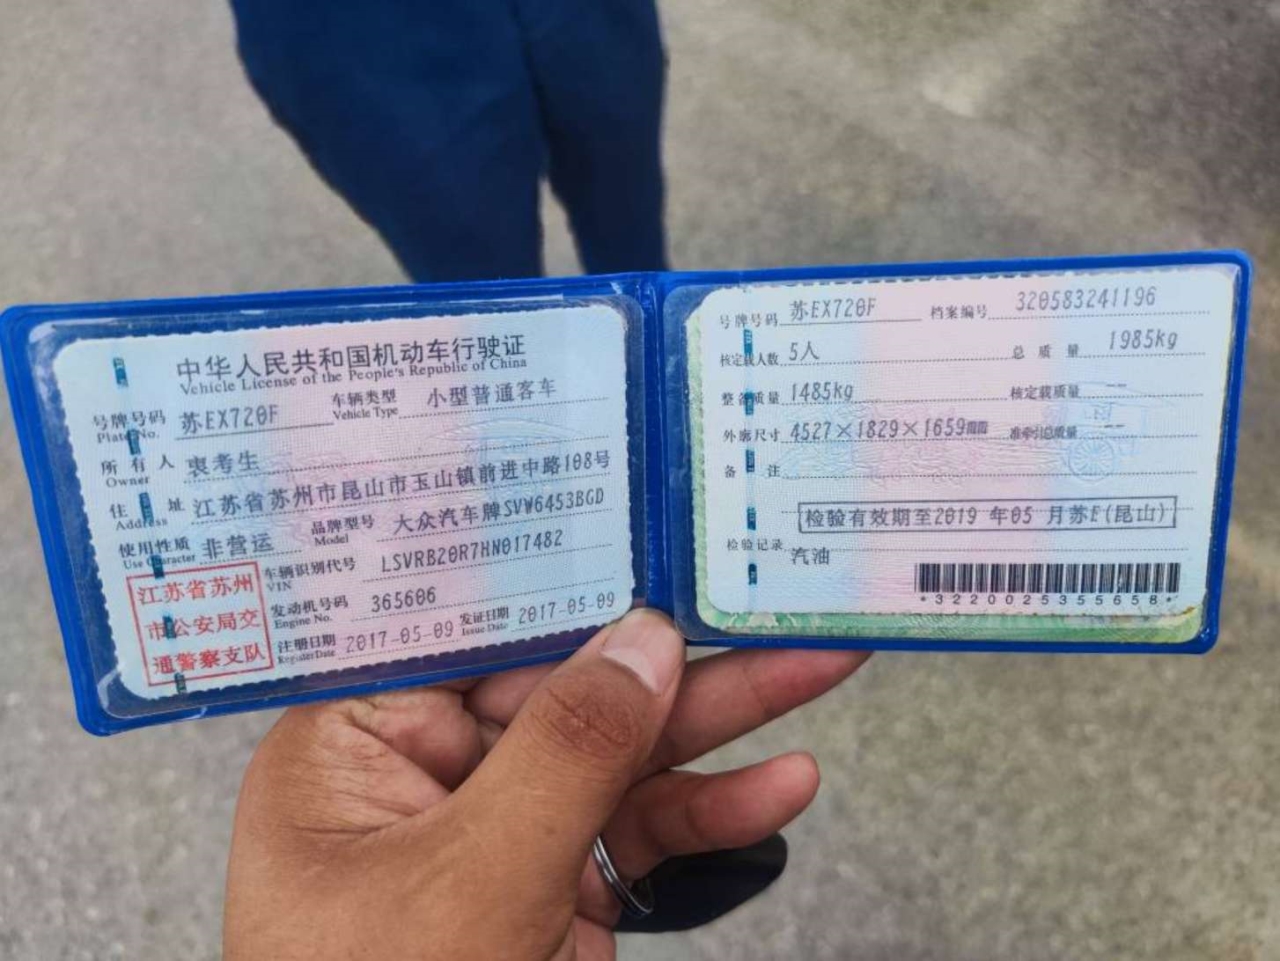 中华人民共和国机动车行驶证
Vehicle License of the People's Republic of China
号牌号码 苏EX720F 车辆类型 小型普通客车
Plate No. Vehicle Type
所有人 裵考生
Owner
住址 江苏省苏州市昆山市玉山镇前进中路108号
Address
使用性质 非营运 品牌型号 大众汽车牌SVW6453BGD
Use Character Model
江苏省苏州
市公安局交
通警察支队
车辆识别代号 LSVRB20R7HN017482
VIN
发动机号码 365606
Engine No.
注册日期 2017-05-09 发证日期 2017-05-09
Register Date Issue Date
号牌号码 苏EX720F 档案编号 320583241196
核定载人数 5人 总质量 1985kg
整备质量 1485kg 核定载质量 --
外廓尺寸 4527×1829×1659 准牵引总质量 --
备注
检验有效期至2019 年05 月苏E(昆山)
检验记录
汽油
*3220025355658*